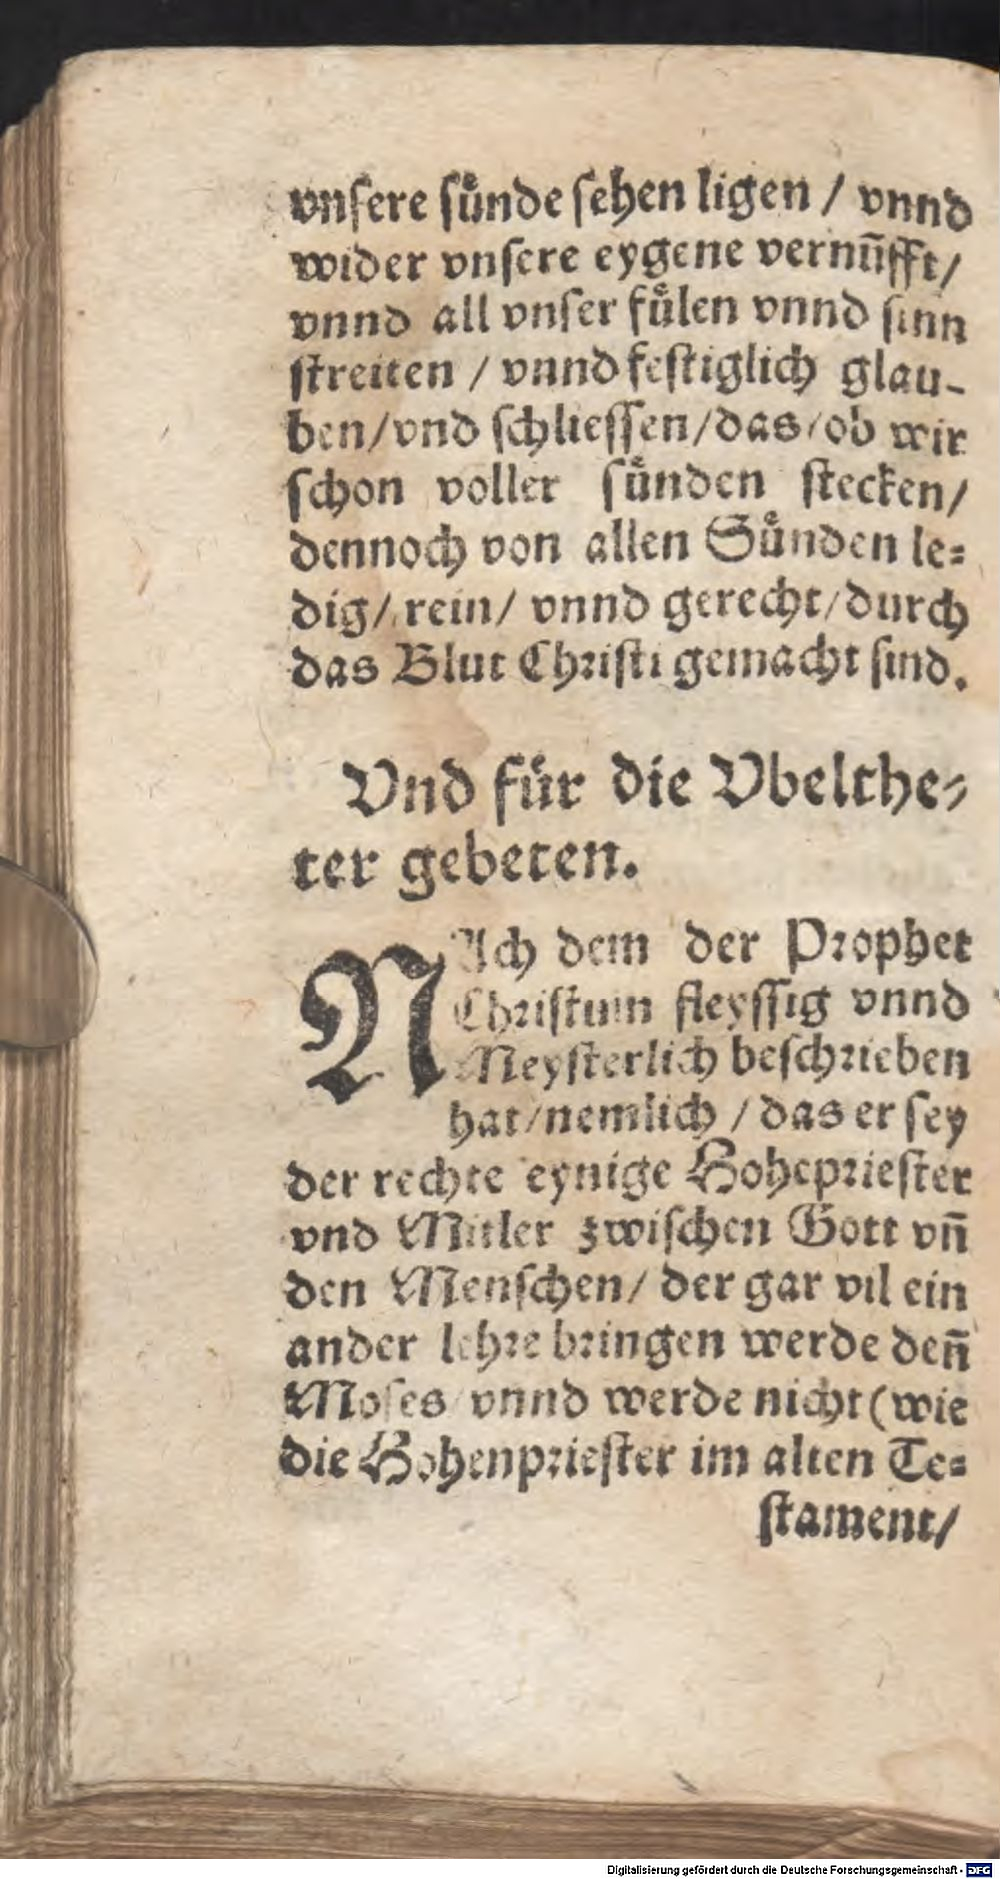 vnſere ſuͤnde ſehen ligen / vnnd
wider vnſere eygene vernūfft/
vnnd all vnſer fuͤlen vnnd ſinn
ſtreiten / vnnd feſtiglich glau-
ben/vnd ſchlieſſen/das/ob wir
ſchon voller ſuͤnden ſtecken/
dennoch von allen Suͤnden le=
dig/ rein/ vnnd gerecht/durch
das Blut Chriſti gemacht ſind.
Vnd für die Vbelthe=
ter gebeten.
NAch dem der Prophet
Chriſtum fleyſſig vnnd
Meyſterlich beſchrieben
hat/nemlich / das er ſey
der rechte eynige Hoheprieſter
vnd Mitler zwiſchen Gott vn̄
den Menſchen/ der gar vil ein
ander lehre bringen werde den̄
Moſes/ vnnd werde nicht (wie
die Hohenprieſter im alten Te=
ſtament/
Digitalisierung gefördert durch die Deutsche Forschungsgemeinschaft - DFG